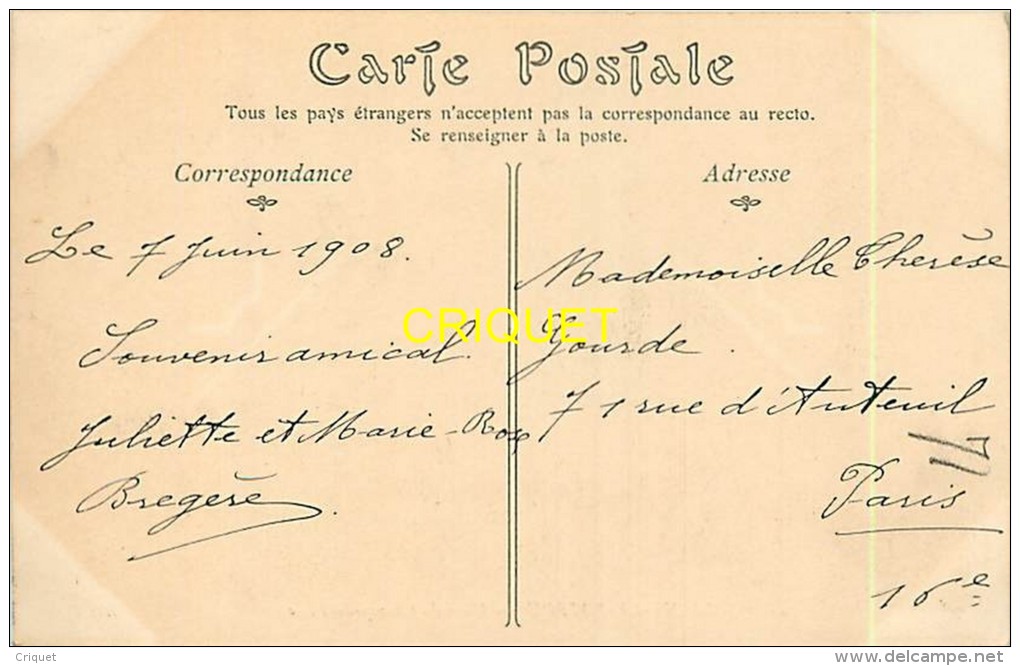 Carte Postale
Tous les pays étrangers n'acceptent pas la correspondance au recto.
Se renseigner à la poste.
Correspondance
Le 7 Juin 1908.
Souvenir amical.
Juliette et Marie-Rose
Bregère.
Adresse
Mademoiselle Therèse
Gourde.
71 rue d'Auteuil
71
Paris
16e
CRIQUET
Criquet
www.delcampe.net